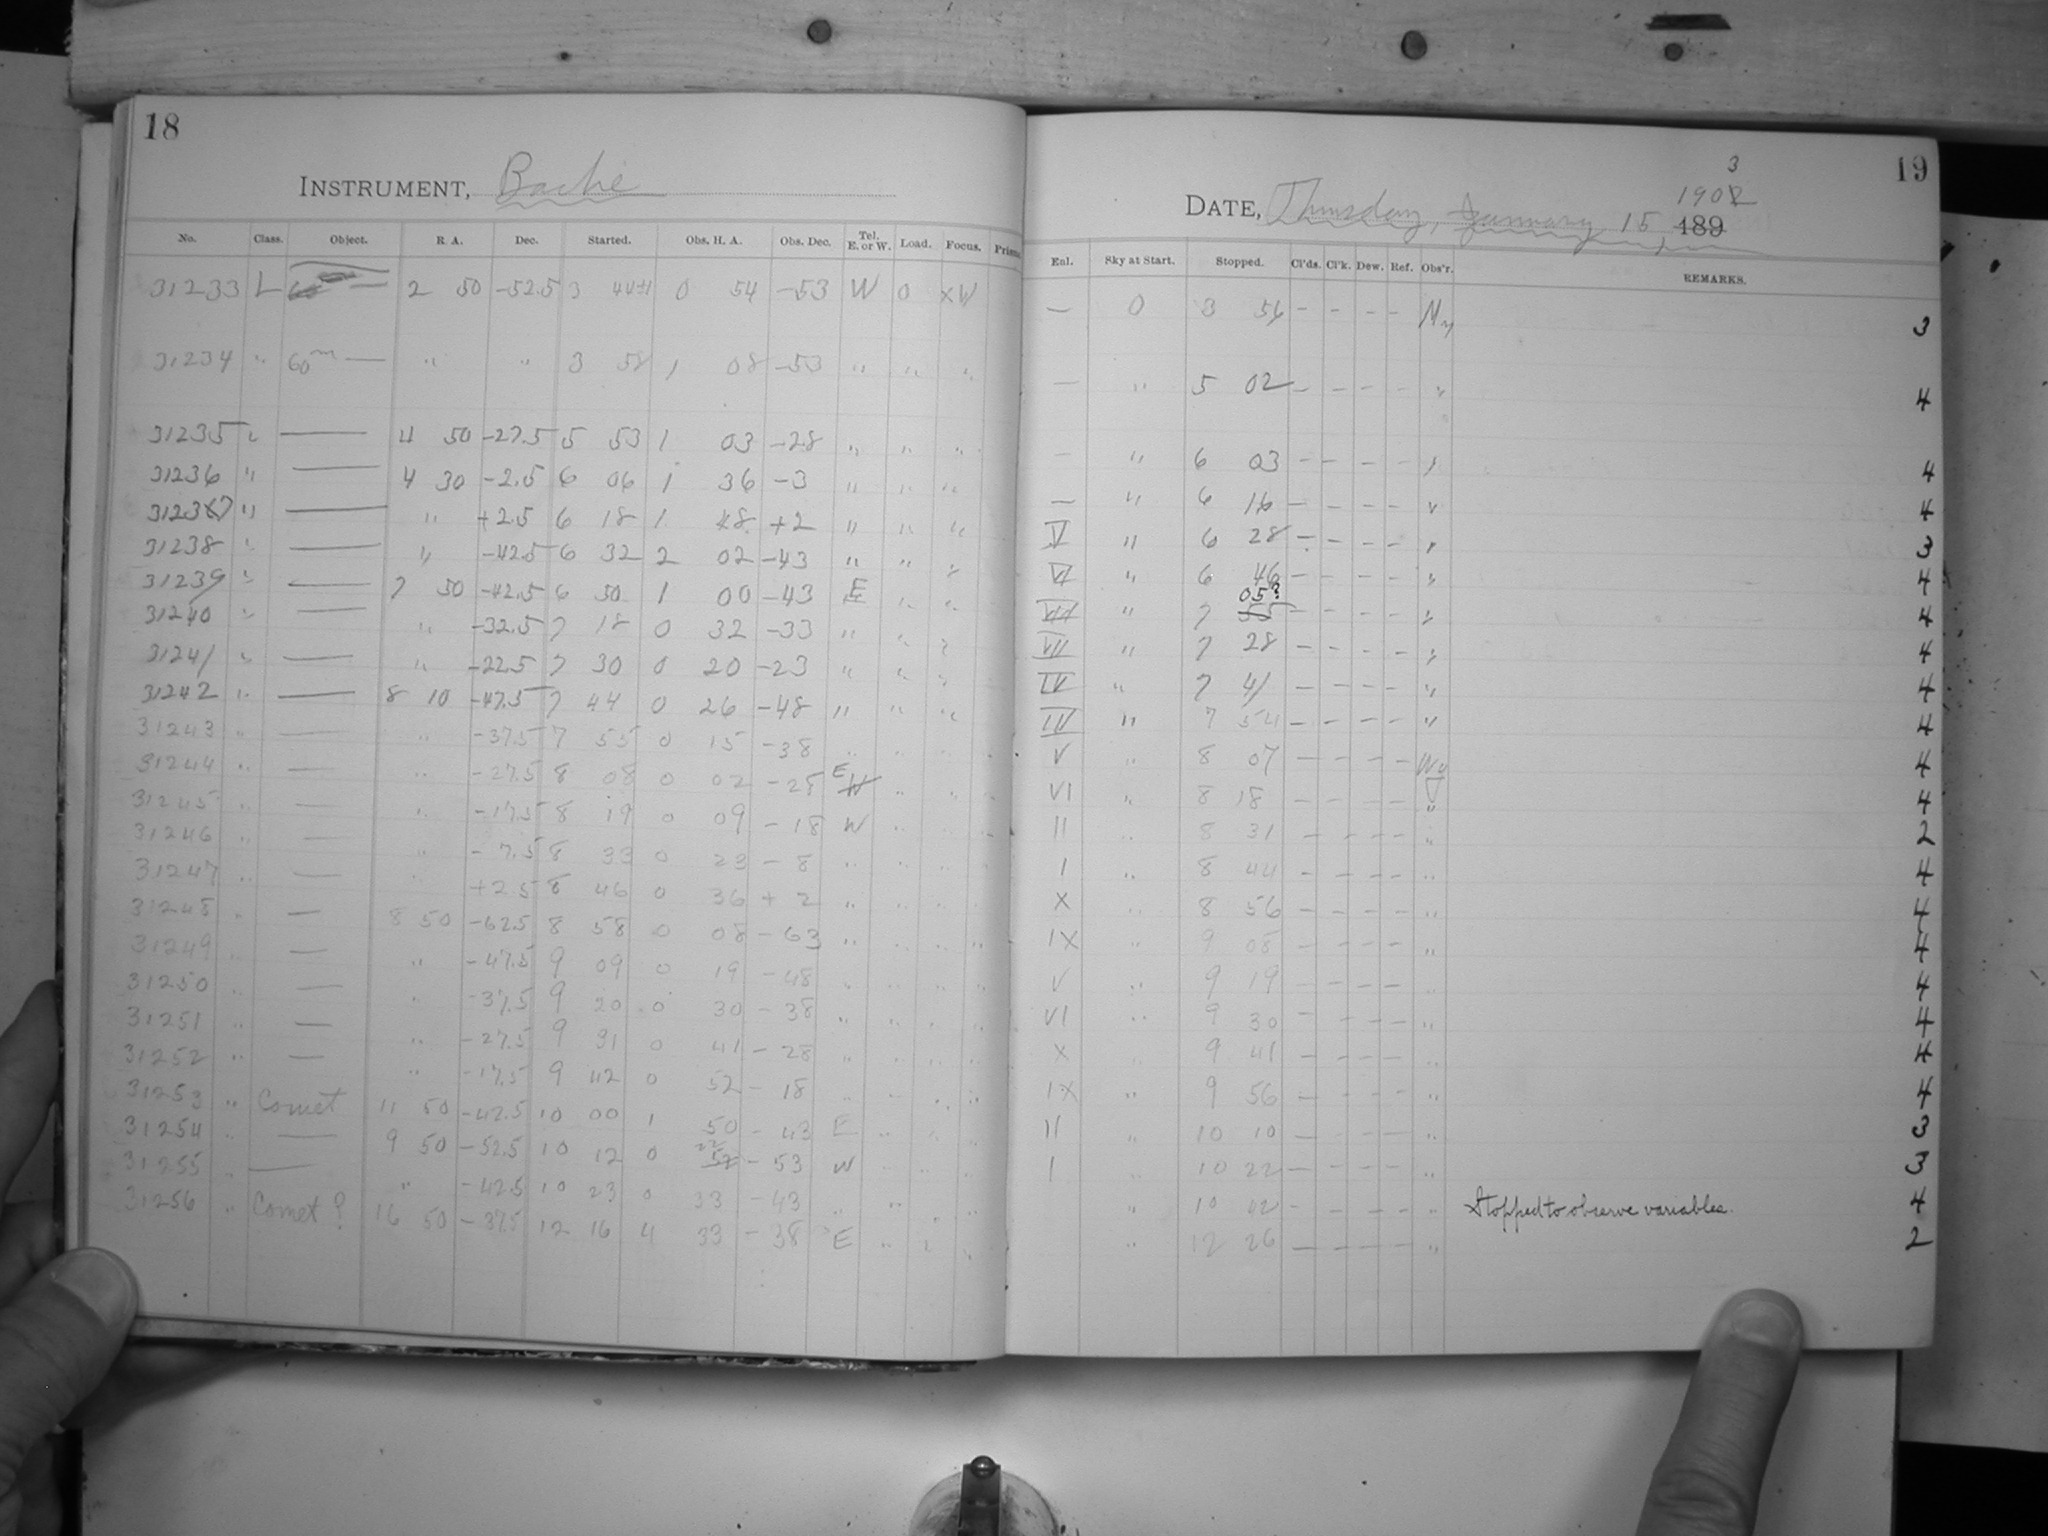 18
INSTRUMENT, Bache
No. Class. Object. R. A. Dec. Started. Obs. H. A. Obs. Dec. Tel. E. or W. Load. Focus. Prism.
31233 L — 2 50 -52.5 3 44±1 0 54 -53 W 0 XW
31234 " 60m — " " 3 58 1 08 -53 " " "
31235 " — 4 50 -27.5 5 53 1 03 -28 " " "
31236 " — 4 30 -2.5 6 06 1 36 -3 " " "
31237 " — " +2.5 6 18 1 48 +2 " " "
31238 " — " -42.5 6 32 2 02 -43 " " "
31239 " — 7 50 -42.5 6 50 1 00 -43 E " "
31240 " — " -32.5 7 18 0 32 -33 " " "
31241 " — " -22.5 7 30 0 20 -23 " " "
31242 " — 8 10 -47.5 7 44 0 26 -48 " " "
31243 " — " -37.5 7 55 0 15 -38 " " "
31244 " — " -27.5 8 08 0 02 -28 E W " "
31245 " — " -17.5 8 19 0 09 -18 W " "
31246 " — " -7.5 8 33 0 23 -8 " " "
31247 " — " +2.5 8 46 0 36 +2 " " "
31248 " — 8 50 -62.5 8 58 0 08 -63 " " "
31249 " — " -47.5 9 09 0 19 -48 " " "
31250 " — " -37.5 9 20 0 30 -38 " " "
31251 " — " -27.5 9 31 0 41 -28 " " "
31252 " — " -17.5 9 42 0 52 -18 " " "
31253 " Comet 11 50 -42.5 10 00 1 50 -43 E " "
31254 " — 9 50 -52.5 10 12 0 22 52 -53 W " "
31255 " — " -42.5 10 23 0 33 -43 " " "
31256 " Comet? 16 50 -37.5 12 16 4 33 -38 E " "
19
DATE, Thursday, January 15, 1902 3 189
Enl. Sky at Start. Stopped. Cl'ds. Cl'k. Dew. Ref. Obs'r. REMARKS.
— 0 3 54 — — — — 3
— " 5 02 — — — — " 4
— " 6 03 — — — — " 4
— " 6 16 — — — — " 4
V " 6 28 — — — — " 3
VI " 6 46 — — — — " 4
" 7 55 05? — — — — " 4
VII " 7 28 — — — — " 4
IX " 7 41 — — — — " 4
III " 7 54 — — — — " 4
V " 8 07 — — — — 4
VI " 8 18 — — — — " 4
II " 8 31 — — — — " 2
I " 8 44 — — — — " 4
X " 8 56 — — — — " 4
IX " 9 08 — — — — " 4
V " 9 19 — — — — " 4
VI " 9 30 — — — — " 4
X " 9 41 — — — — " 4
IX " 9 56 — — — — " 4
II " 10 10 — — — — " 3
I " 10 22 — — — — " 3
" 10 42 — — — — " Stopped to observe variables. 4
" 12 26 — — — — " 2